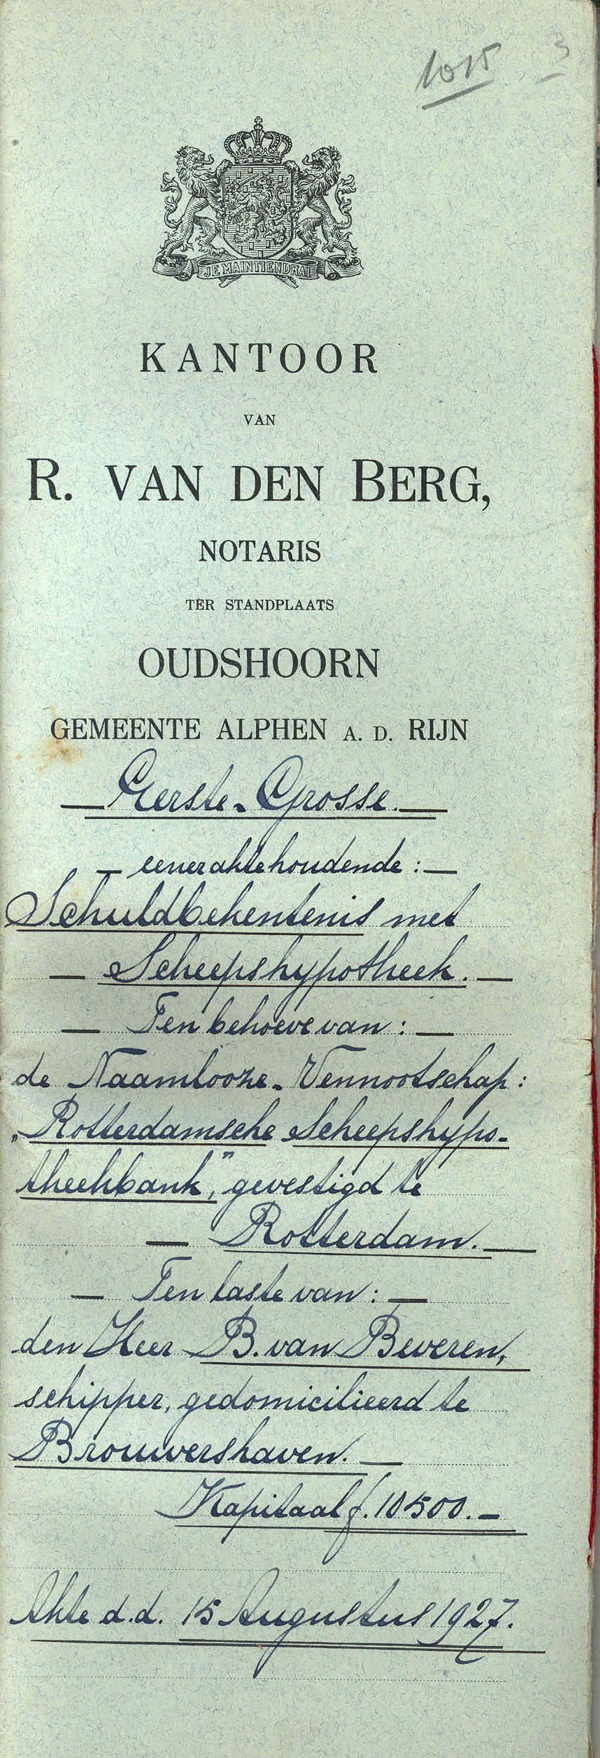 1015 3
JE MAINTIENDRAI
KANTOOR
VAN
R. VAN DEN BERG,
NOTARIS
TER STANDPLAATS
OUDSHOORN
GEMEENTE ALPHEN A. D. RIJN
— Eerste - Grosse. —
— eener akte houdende: —
Schuldbekentenis met
— Scheepshypotheek. —
— Ten behoeve van: —
de Naamlooze - Vennootschap:
„Rotterdamsche Scheepshypo-
theekbank," gevestigd te
— Rotterdam. —
— Ten laste van: —
den Heer B. van Beveren,
schipper, gedomicilieerd te
Brouwershaven. —
Kapitaal f. 10500. —
Akte d.d. 15 Augustus 1927.